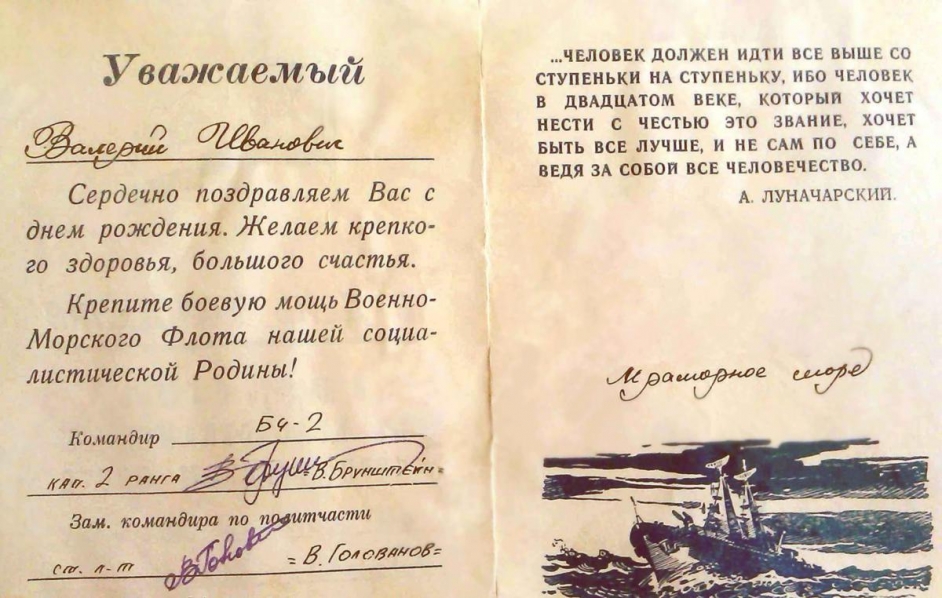 Уважаемый
Валерий Иванович
Сердечно поздравляем Вас с
днем рождения. Желаем крепко-
го здоровья, большого счастья.
Крепите боевую мощь Военно-
Морского Флота нашей социа-
листической Родины!
Командир БЧ-2
кап. 2 ранга =В. Брунштейн=
Зам. командира по политчасти
ст. л-т =В. Голованов=
...ЧЕЛОВЕК ДОЛЖЕН ИДТИ ВСЕ ВЫШЕ СО
СТУПЕНЬКИ НА СТУПЕНЬКУ, ИБО ЧЕЛОВЕК
В ДВАДЦАТОМ ВЕКЕ, КОТОРЫЙ ХОЧЕТ
НЕСТИ С ЧЕСТЬЮ ЭТО ЗВАНИЕ, ХОЧЕТ
БЫТЬ ВСЕ ЛУЧШЕ, И НЕ САМ ПО СЕБЕ, А
ВЕДЯ ЗА СОБОЙ ВСЕ ЧЕЛОВЕЧЕСТВО.
А. ЛУНАЧАРСКИЙ.
Мраморное море